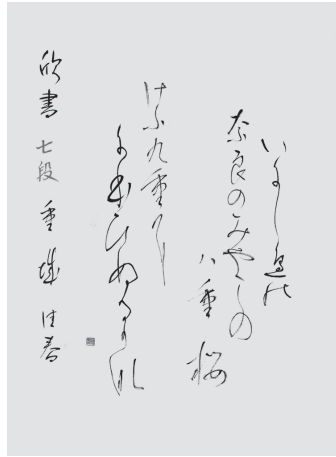 いにし邊能
奈良のみやこの
八重桜
けふ九重に
にほひぬるかな
欣書 七段 重城佳春